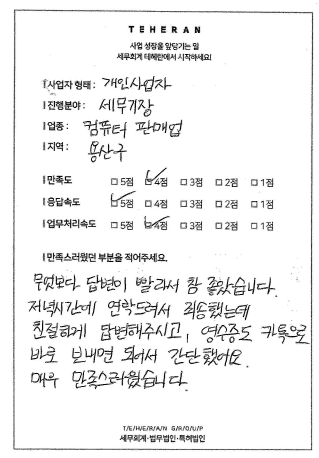 TEHERAN
사업 성장을 앞당기는 일
세무회계 테헤란에서 시작하세요!
사업자 형태 : 개인사업자
진행분야 : 세무기장
업종 : 컴퓨터 판매업
지역 : 용산구
만족도 □ 5점 ☑ 4점 □ 3점 □ 2점 □ 1점
응답속도 ☑ 5점 □ 4점 □ 3점 □ 2점 □ 1점
업무처리속도 □ 5점 ☑ 4점 □ 3점 □ 2점 □ 1점
만족스러웠던 부분을 적어주세요.
무엇보다 답변이 빨라서 참 좋았습니다.
저녁시간에 연락드려서 죄송했는데
친절하게 답변해주시고, 영수증도 카톡으로
바로 보내면 되어서 간단했어요.
매우 만족스러웠습니다.
T/E/H/E/R/A/N G/R/O/U/P
세무회계·법무법인·특허법인